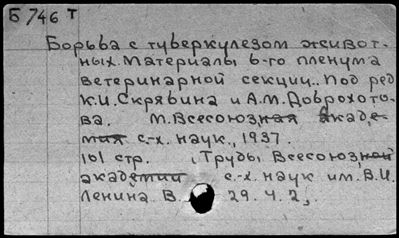 Б 746 т
Борьба с туберкулезом живот-
ных. Материалы 6-го пленума
ветеринарной секции. Под ред
К.И. Скрябина и А.М. Доброхото-
ва. М. Всесоюзная акаде-
мия с.-х. наук, 1937.
161 стр. (Труды Всесоюзной
академии с.-х. наук им. В.И.
Ленина В. 29. Ч. 2)